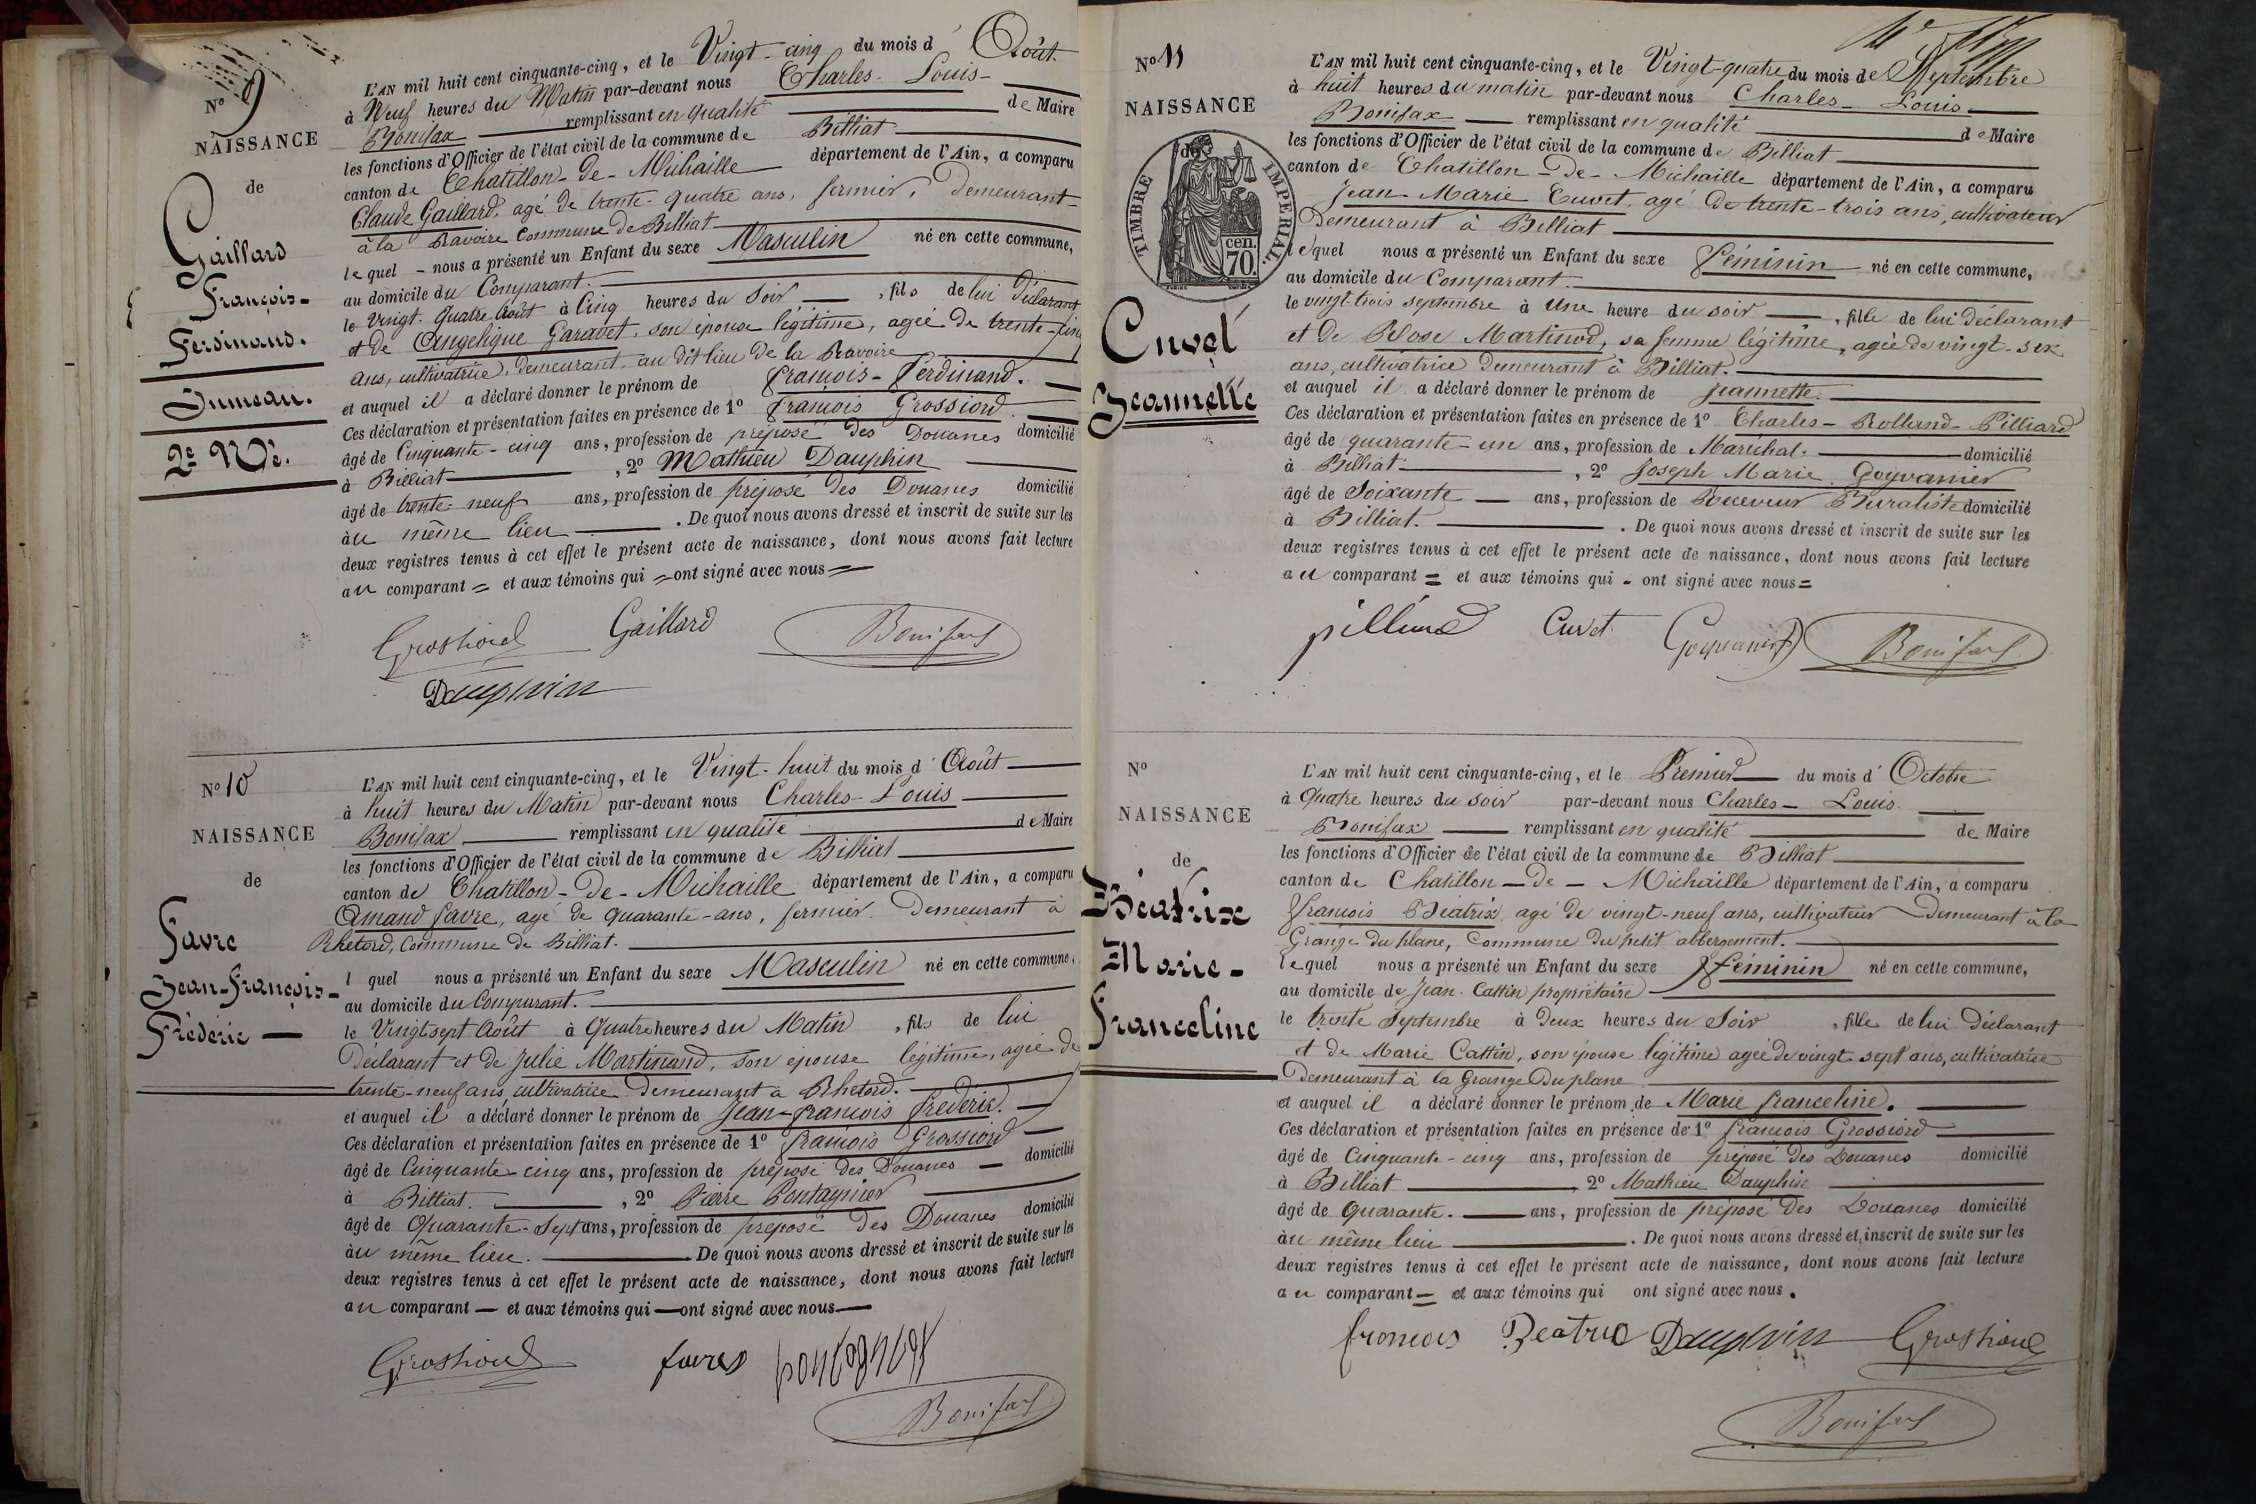 N° 9
NAISSANCE
de
Gaillard
François-
Ferdinand.
Jumeau.
2e Né.
L'AN mil huit cent cinquante-cinq, et le Vingt-cinq du mois d' Août.
à Neuf heures du Matin par-devant nous Charles-Louis-
Bonifax remplissant en qualité de Maire
les fonctions d'Officier de l'état civil de la commune de Billiat
canton de Chatillon-de-Michaille département de l'Ain, a comparu
Claude Gaillard, agé de trente-quatre ans, fermier, Demeurant
à la Ravoire Commune de Billiat
lequel - nous a présenté un Enfant du sexe Masculin né en cette commune,
au domicile du Comparant.
le Vingt-Quatre Août à Cinq heures du Soir, fils de lui Déclarant
et de Angelique Garavet, son épouse légitime, agée de trente-cinq
ans, cultivatrice, demeurant au dit lieu de la Ravoire
et auquel il a déclaré donner le prénom de François-Ferdinand.
Ces déclaration et présentation faites en présence de 1° François Grossiord
âgé de Cinquante-cinq ans, profession de préposé des Douanes domicilié
à Billiat, 2° Mathieu Dauphin
âgé de trente-neuf ans, profession de préposé des Douanes domicilié
au même lieu. De quoi nous avons dressé et inscrit de suite sur les
deux registres tenus à cet effet le présent acte de naissance, dont nous avons fait lecture
au comparant = et aux témoins qui = ont signé avec nous =
Grossiord Gaillard Bonifax
Dauphin
N° 10
NAISSANCE
de
Favre
Jean-François-
Fréderic
L'AN mil huit cent cinquante-cinq, et le Vingt-huit du mois d' Août
à huit heures du Matin par-devant nous Charles-Louis
Bonifax remplissant en qualité de Maire
les fonctions d'Officier de l'état civil de la commune de Billiat
canton de Chatillon-de-Michaille département de l'Ain, a comparu
Amand favre, agé de quarante-ans, fermier Demeurant à
Rhetord, Commune de Billiat.
l quel nous a présenté un Enfant du sexe Masculin né en cette commune,
au domicile du Comparant.
le Vingt sept Août à Quatre heures du Matin, fils de lui
Déclarant et de Julie Martinand, son épouse légitime, agée de
trente-neuf ans, cultivatrice Demeurant a Rhetord.
et auquel il a déclaré donner le prénom de Jean-françois fréderic.
Ces déclaration et présentation faites en présence de 1° françois Grossiord
âgé de Cinquante-cinq ans, profession de préposé des Douanes domicilié
à Billiat., 2° Pierre Pontagnier
âgé de Quarante-Sept ans, profession de préposé des Douanes domicilié
au même lieu. De quoi nous avons dressé et inscrit de suite sur les
deux registres tenus à cet effet le présent acte de naissance, dont nous avons fait lecture
au comparant — et aux témoins qui — ont signé avec nous —
Grossiord favre
Bonifax
N° 11
NAISSANCE
de
TIMBRE IMPÉRIAL.
cen.
70.
Cuvet
Jeannette
L'AN mil huit cent cinquante-cinq, et le Vingt-quatre du mois de Septembre
à huit heures du matin par-devant nous Charles-Louis
Bonifax remplissant en qualité de Maire
les fonctions d'Officier de l'état civil de la commune de Billiat
canton de Chatillon-de-Michaille département de l'Ain, a comparu
Jean-Marie Cuvet, agé de trente-trois ans, cultivateur
Demeurant à Billiat
lequel nous a présenté un Enfant du sexe féminin né en cette commune,
au domicile du Comparant.
le vingt-trois septembre à Une heure du soir, fille de lui déclarant
et de Rose Martinod, sa femme légitime, agée de vingt-six
ans, cultivatrice Demeurant à Billiat.
et auquel il a déclaré donner le prénom de Jeannette.
Ces déclaration et présentation faites en présence de 1° Charles-Rolland-Pilliard
âgé de quarante-un ans, profession de Maréchal. domicilié
à Billiat, 2° Joseph Marie Goyvanier
âgé de Soixante ans, profession de Receveur Buraliste domicilié
à Billiat. De quoi nous avons dressé et inscrit de suite sur les
deux registres tenus à cet effet le présent acte de naissance, dont nous avons fait lecture
au comparant = et aux témoins qui - ont signé avec nous =
pilliard Cuvet Bonifax
N°
NAISSANCE
de
Béatrix
Marie-
Franceline
L'AN mil huit cent cinquante-cinq, et le Premier du mois d' Octobre
à Quatre heures du soir par-devant nous Charles-Louis
Bonifax remplissant en qualité de Maire
les fonctions d'Officier de l'état civil de la commune de Billiat
canton de Chatillon-de-Michaille département de l'Ain, a comparu
françois Béatrix agé de vingt-neuf ans, cultivateur Demeurant à la
Grange du plane, Commune du petit abbergement.
lequel nous a présenté un Enfant du sexe féminin né en cette commune,
au domicile de Jean Cattin propriétaire
le trente Septembre à Deux heures du Soir, fille de lui Déclarant
et de Marie Cattin, son épouse légitime agée de vingt sept ans, cultivatrice
Demeurant à la Grange Du plane
et auquel il a déclaré donner le prénom de Marie franceline.
Ces déclaration et présentation faites en présence de 1° françois Grossiord
âgé de Cinquante-cinq ans, profession de préposé des Douanes domicilié
à Billiat, 2° Mathieu Dauphin
âgé de Quarante. ans, profession de préposé des Douanes domicilié
au même lieu. De quoi nous avons dressé et inscrit de suite sur les
deux registres tenus à cet effet le présent acte de naissance, dont nous avons fait lecture
au comparant = et aux témoins qui ont signé avec nous.
francois Beatrix Dauphin Grossiord
Bonifax